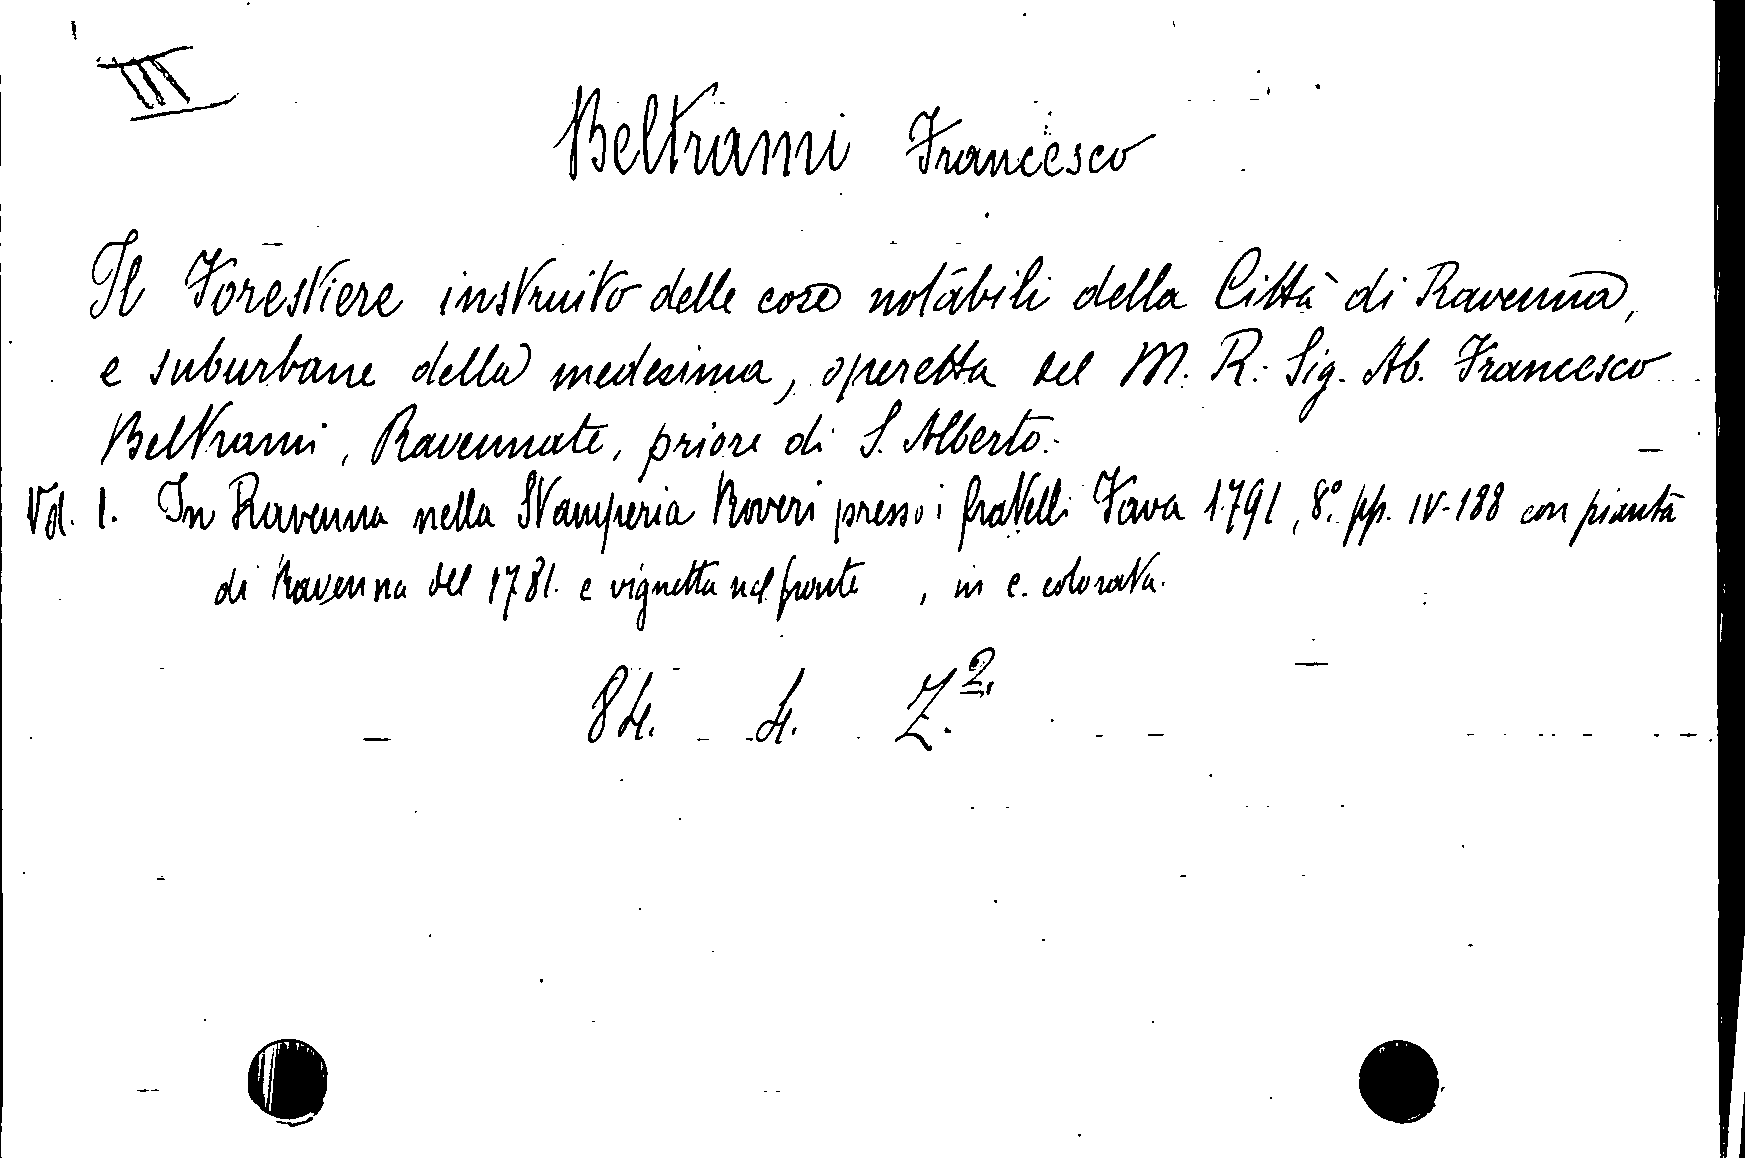 III
Beltrami Francesco
Il Forestiere instruito delle cose notabili della Città di Ravenna,
e suburbane della medesima, operetta del M. R. Sig. Ab. Francesco
Beltrami, Ravennate, priore di S. Alberto.
Vol. 1. In Ravenna nella Stamperia Roveri presso i fratelli Fava 1791, 8.° pp. IV-188 con pianta
di Ravenna del 1781. e vignetta nel fronte , in c. colorata.
84. 4. Z.2.